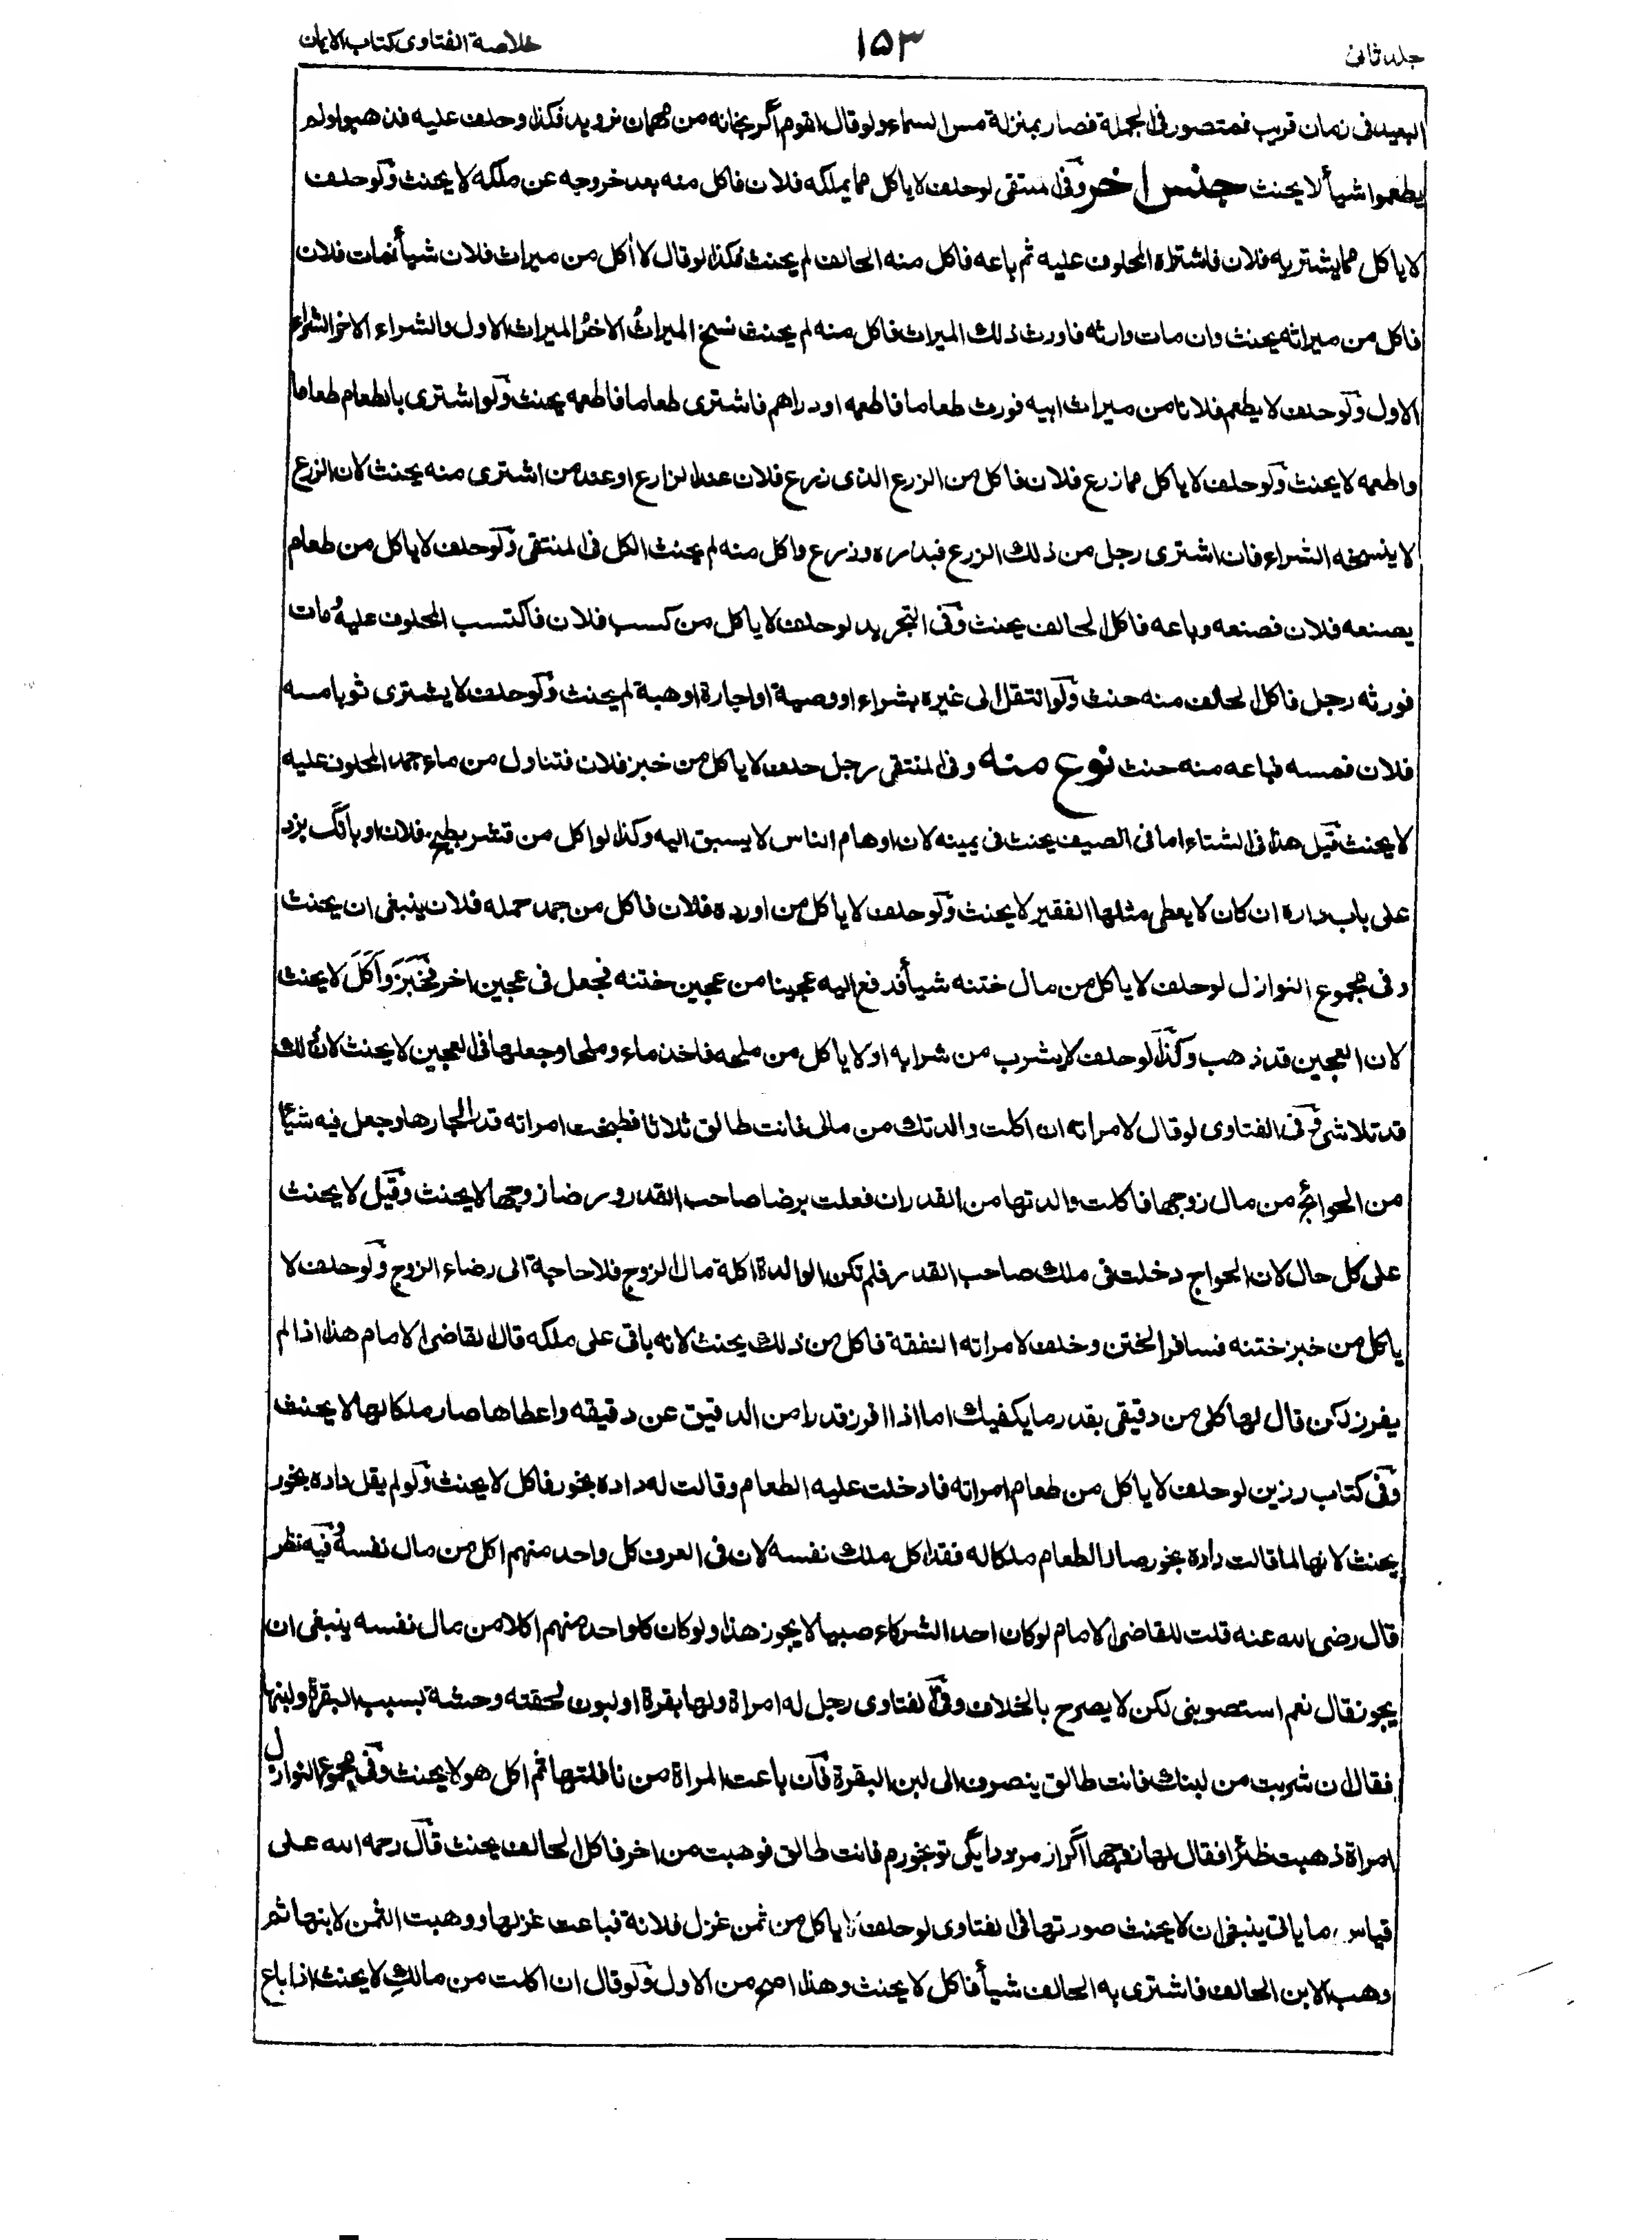 جلد ثانی ١٥٣ خلاصة الفتاوى كتاب الايمان
البعيد فى زمان قريب فمتصور فى الجملة فصار بمنزلة مس السماء ولو قال لقوم اگر بخانه من مهمان نرويد فكذا وحلف عليه فذهبوا ولم
يطعموا شيأ لا يحنث جنس اخر وفى المنتقى لو حلف لا ياكل مما يملكه فلان فاكل منه بعد خروجه عن ملكه لا يحنث ولو حلف
لا ياكل مما يشتريه فلان فاشتراه المحلوف عليه ثم باعه فاكل منه الحالف لم يحنث فكذا لو قال لا أكل من ميراث فلان شيأ فمات فلان
فاكل من ميراثه يحنث وان مات وارثه فاورث ذلك الميراث فاكل منه لم يحنث نسخ الميراثُ الاخرُ الميراث الاول والشراء الاخر الشراء
الاول ولو حلف لا يطعم فلانا من ميراث ابيه فورث طعاما فاطعمه او دراهم فاشترى طعاما فاطعمه يحنث ولو اشترى بالطعام طعاما
واطعمه لا يحنث ولو حلف لا ياكل مما زرع فلان فاكل من الزرع الذى زرع فلان عند الزارع او عند من اشترى منه يحنث لان الزرع
لا ينسخه الشراء فان اشترى رجل من ذلك الزرع فبذره وزرع واكل منه لم يحنث الكل فى المنتقى ولو حلف لا ياكل من طعام
يصنعه فلان فصنعه وباعه فاكل الحالف يحنث وفى التجريد لو حلف لا ياكل من كسب فلان فاكتسب المحلوف عليه ومات
فورثه رجل فاكل الحالف منه حنث ولو انتقل الى غيره بشراء او وصية او اجارة او هبة لم يحنث ولو حلف لا يشترى ثوبا مسه
فلان فمسه فباعه منه حنث نوع منه وفى المنتقى رجل حلف لا ياكل من خبز فلان فتناول من ماء جمد المحلوف عليه
لا يحنث قيل هذا فى الشتاء اما فى الصيف يحنث فى يمينه لان اوهام الناس لا يسبق اليه وكذا لو اكل من قشر بطيخ فلان او بانگ بزد
على باب داره ان كان لا يعطى مثلها الفقير لا يحنث ولو حلف لا ياكل من اورده فلان فاكل من جمد حمله فلان ينبغى ان يحنث
وفى مجموع النوازل لو حلف لا ياكل من مال ختنه شيأ فدفع اليه عجينا من عجين ختنه فجعل فى عجين اخر فخَبَزَ واَكَلَ لا يحنث
لان العجين قد ذهب وكذا لو حلف لا يشرب من شرابه او لا ياكل من ملحه فاخذ ماء وملحا وجعلها فى العجين لا يحنث لان ذلك
قد تلاشى وفى الفتاوى لو قال لامراته ان اكلت والدتك من مالى فانت طالق ثلاثا فطبخت امراته قدر الجارها وجعل فيه شيئا
من الحوائج من مال زوجها فاكلت والدتها من القدر ان فعلت برضا صاحب القدر ورضا زوجها لا يحنث وقيل لا يحنث
على كل حال لان الحوائج دخلت فى ملك صاحب القدر فلم تكن الوالدة اكلة مال الزوج فلا حاجة الى رضاء الزوج ولو حلف لا
ياكل من خبز ختنه فسافر الختن وخلف لامراته النفقة فاكل من ذلك يحنث لانه باقى على ملكه قال القاضى الامام هذا اذا لم
يفرز لكن قال لها كلى من دقيقى بقدر ما يكفيك اما اذا افرز قدرا من الدقيق عن دقيقه واعطاها صار ملكا لها لا يحنث
وفى كتاب رزين لو حلف لا ياكل من طعام امراته فادخلت عليه الطعام وقالت له داده بخور فاكل لا يحنث ولو لم يقل داده بخور
يحنث لانها لما قالت داده بخور صار الطعام ملكا له فقد اكل ملك نفسه لان فى العرف كل واحد منهم اكل من مال نفسه وفيه نظر
قال رضى الله عنه قلت للقاضى الامام لو كان احد الشركاء صبيا لا يجوز هذا ولو كان كل واحد منهم اكلا من مال نفسه ينبغى ان
يجوز فقال نعم استصوبنى لكن لا يصرح بالخلاف وفى الفتاوى رجل له امراة ولها بقرة او لبون لحقته وحشة بسبب البقرة ولبنها
فقال ان شربت من لبنك فانت طالق ينصرف الى لبن البقرة فان باعت المراة من نافلتها ثم اكل هو لا يحنث وفى مجموع النوازل
امراة ذهبت ظئرا فقال لها زوجها اگر از مزد دايگى تو بخورم فانت طالق فوهبت من اخر فاكل الحالف يحنث قال رحمه الله على
قياس ما ياتى ينبغى ان لا يحنث صورتها فى الفتاوى لو حلف لا ياكل من ثمن غزل فلانة فباعت غزلها ووهبت الثمن لابنها ثم
وهب الابن الحالف فاشترى به الحالف شيأ فاكل لا يحنث وهذا اصح من الاول ولو قال ان اكلت من مالكِ لا يحنث اذا باع